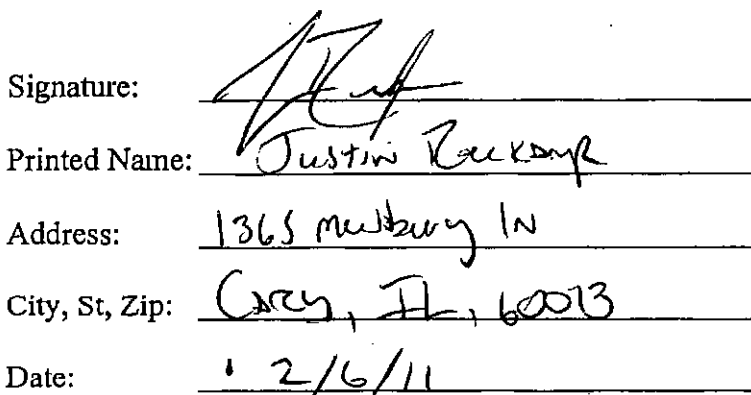 Signature:
Printed Name: Justin
Address: 1365 Newbury LN
City, St, Zip: Cary, IL, 60013
Date: 2/6/11